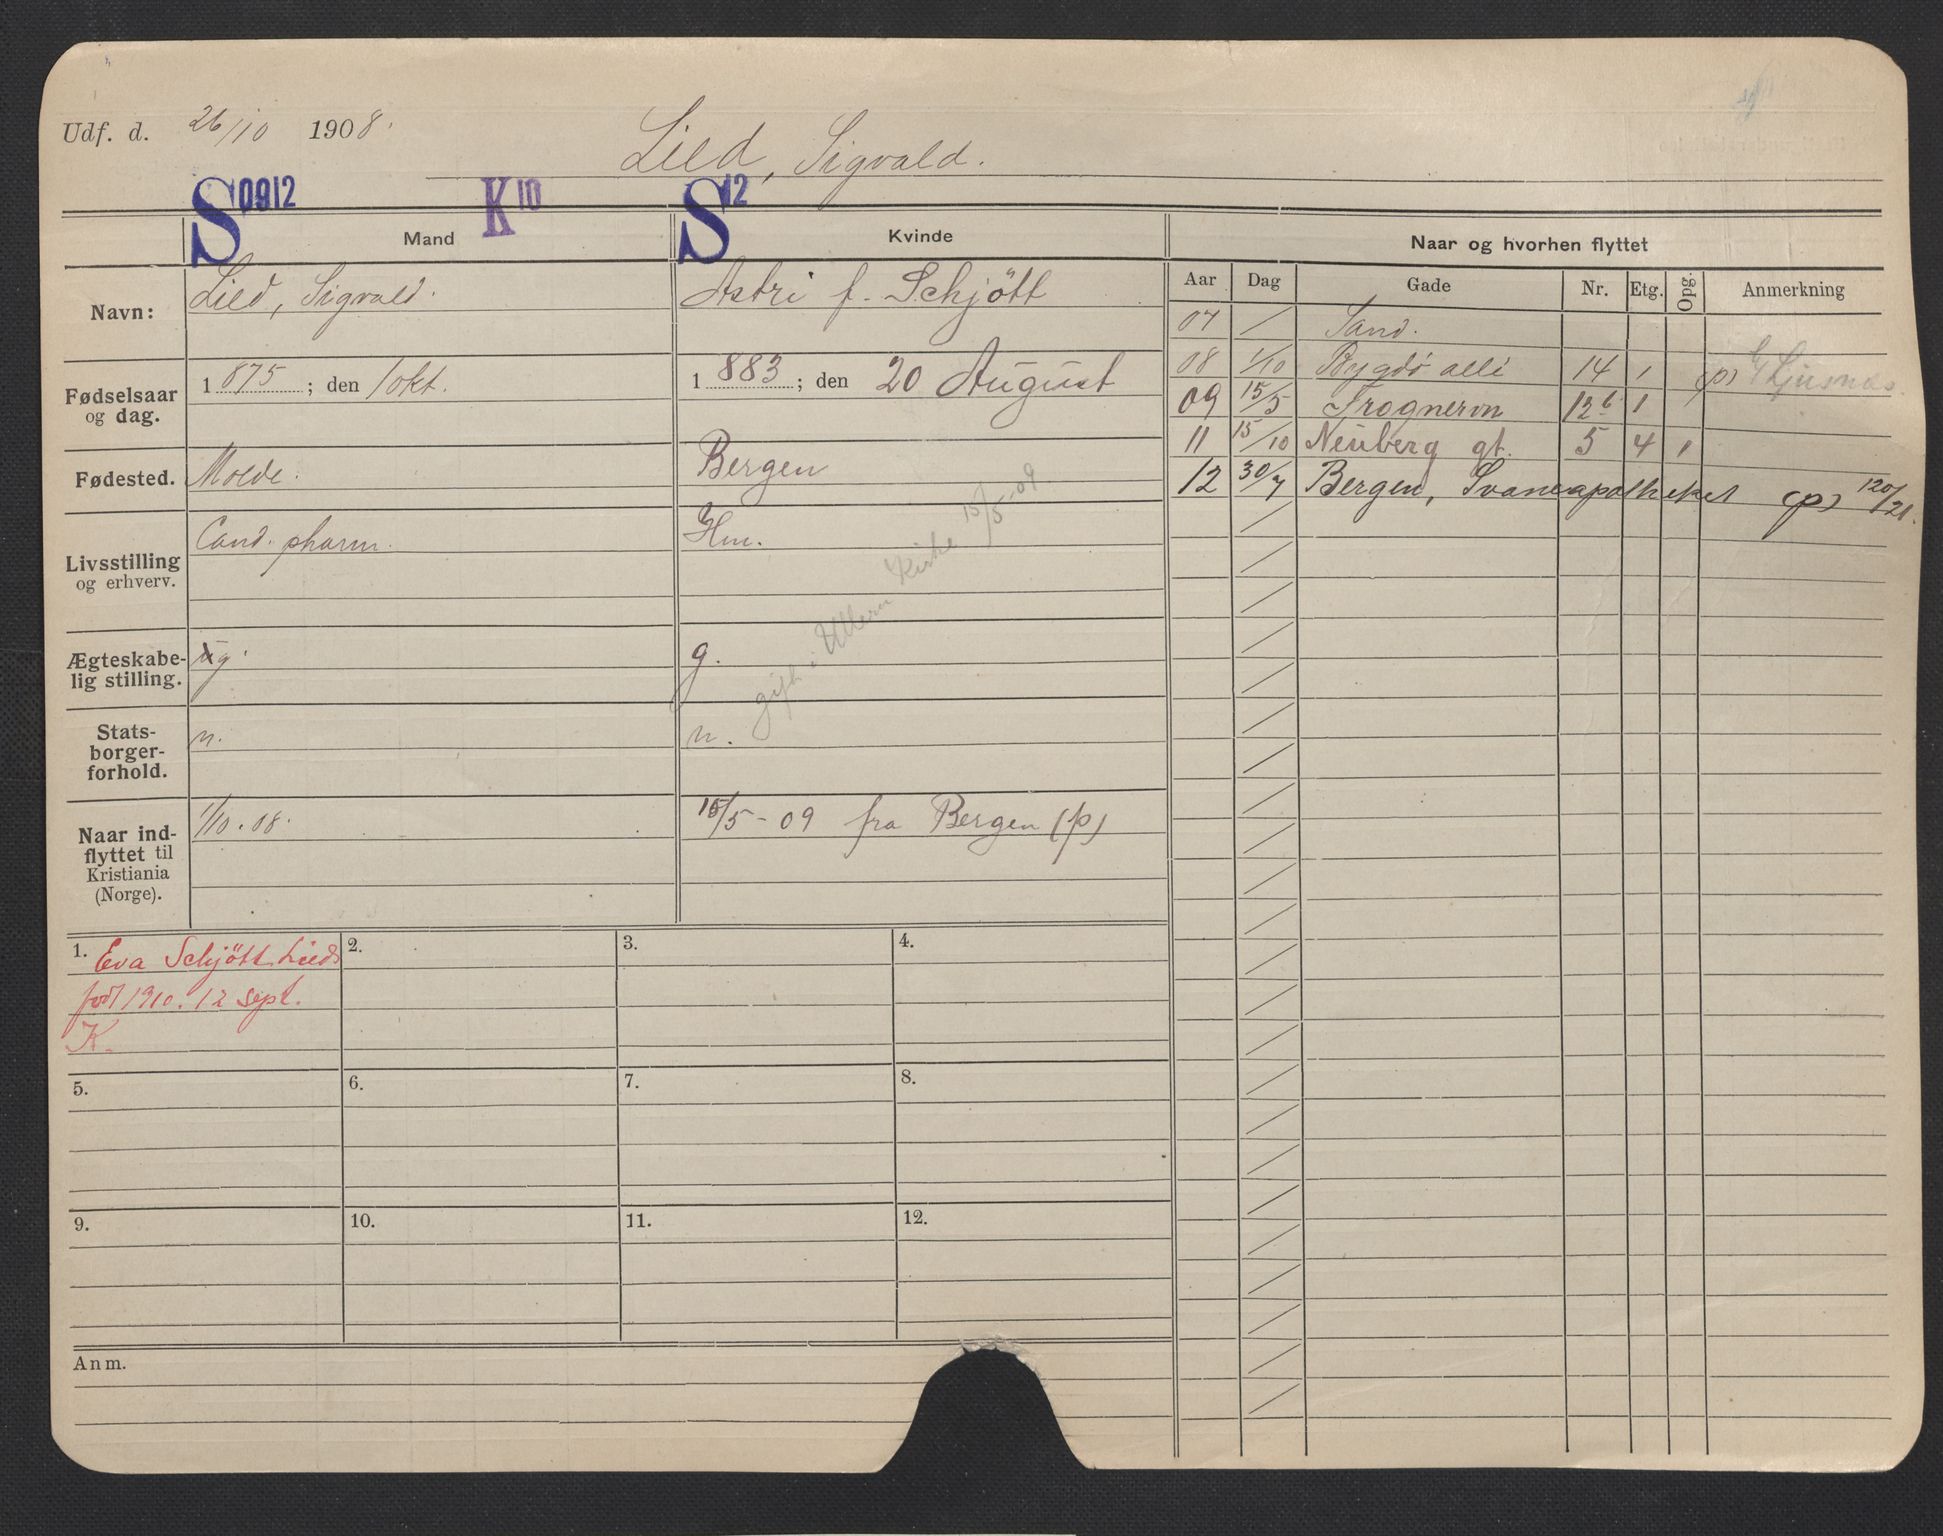 Udf. d. 26/10 1908.
Lied, Sigvald.
S 0912 K 10 S 12
Mand Kvinde Naar og hvorhen flyttet
Navn: Lied, Sigvald. Astri f. Schjött
Fødselsaar og dag. 1875; den 1 okt. 1883; den 20 August
Fødested. Molde. Bergen
Livsstilling og erhverv. Cand. pharm. Hm.
Ægteskabelig stilling. g. g.
gift i Ullern Kirke 15/5 09
Statsborgerforhold. n. n.
Naar indflyttet til Kristiania (Norge). 1/10. 08. 15/5 - 09 fra Bergen (p)
Aar Dag Gade Nr. Etg. Opg. Anmerkning
07 / Sand.
08 1/10 Bygdø alle 14 1 (p)
09 15/5 Frognervn 12 b 1
11 15/10 Neuberg gt. 5 4 1
12 30/7 Bergen, Svaneapotheket (p) 120/21.
1. Eva Schjött Lied
født 1910. 12 sept.
K.
2.
3.
4.
5.
6.
7.
8.
9.
10.
11.
12.
Anm.